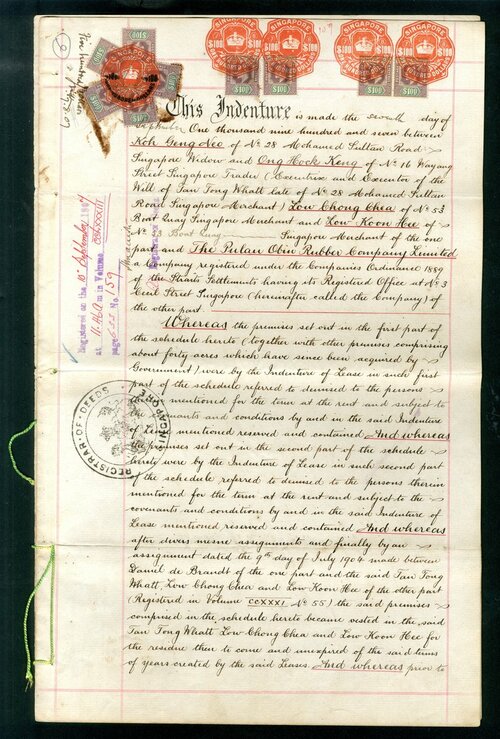 SINGAPORE
$100 $100
SINGAPORE
$100 $100
SINGAPORE
$100 $100
SINGAPORE
$100 $100
This Indenture is made the seventh day of
September One thousand nine hundred and seven between
Koh Geng Neo of No 28 Mohamed Sultan Road
Singapore Widow and Ong Hock Keng of No 16 Wayang
Street Singapore Trader (Executrix and Executor of the
Will of Tan Tong Whatt late of No 28 Mohamed Sultan
Road Singapore Merchant) Low Chong Chea of No 53
Boat Quay Singapore Merchant and Low Koon Hee of
No Boat Quay Singapore Merchant of the one
part and The Pulau Obin Rubber Company Limited
a Company registered under the Companies Ordinance 1889
of the Straits Settlements having its Registered Office at No 3
Cecil Street Singapore (hereinafter called the Company) of
the other part
Whereas the premises set out in the first part of
the schedule hereto (together with other premises comprising
about forty acres which have since been acquired by
Government) were by the Indenture of Lease in such first
part of the schedule referred to demised to the persons
mentioned for the term at the rent and subject to
covenants and conditions by and in the said Indenture
of Lease mentioned reserved and contained And whereas
the premises set out in the second part of the schedule
hereto were by the Indenture of Lease in such second part
of the schedule referred to demised to the persons therein
mentioned for the term at the rent and subject to the
covenants and conditions by and in the said Indenture of
Lease mentioned reserved and contained And whereas
after divers mesne assignments and finally by an
assignment dated the 9th day of July 1904 made between
Daniel de Brandt of the one part and the said Tan Tong
Whatt Low Chong Chea and Low Koon Hee of the other part
(Registered in Volume CCXXXI No 55) the said premises
comprised in the schedule hereto became vested in the said
Tan Tong Whatt Low Chong Chea and Low Koon Hee for
the residue then to come and unexpired of the said terms
of years created by the said Leases. And whereas prior to
Registered on the 10 September 1907
at 11.40 A m in Volume
page No. 159
REGISTRAR OF DEEDS SINGAPORE